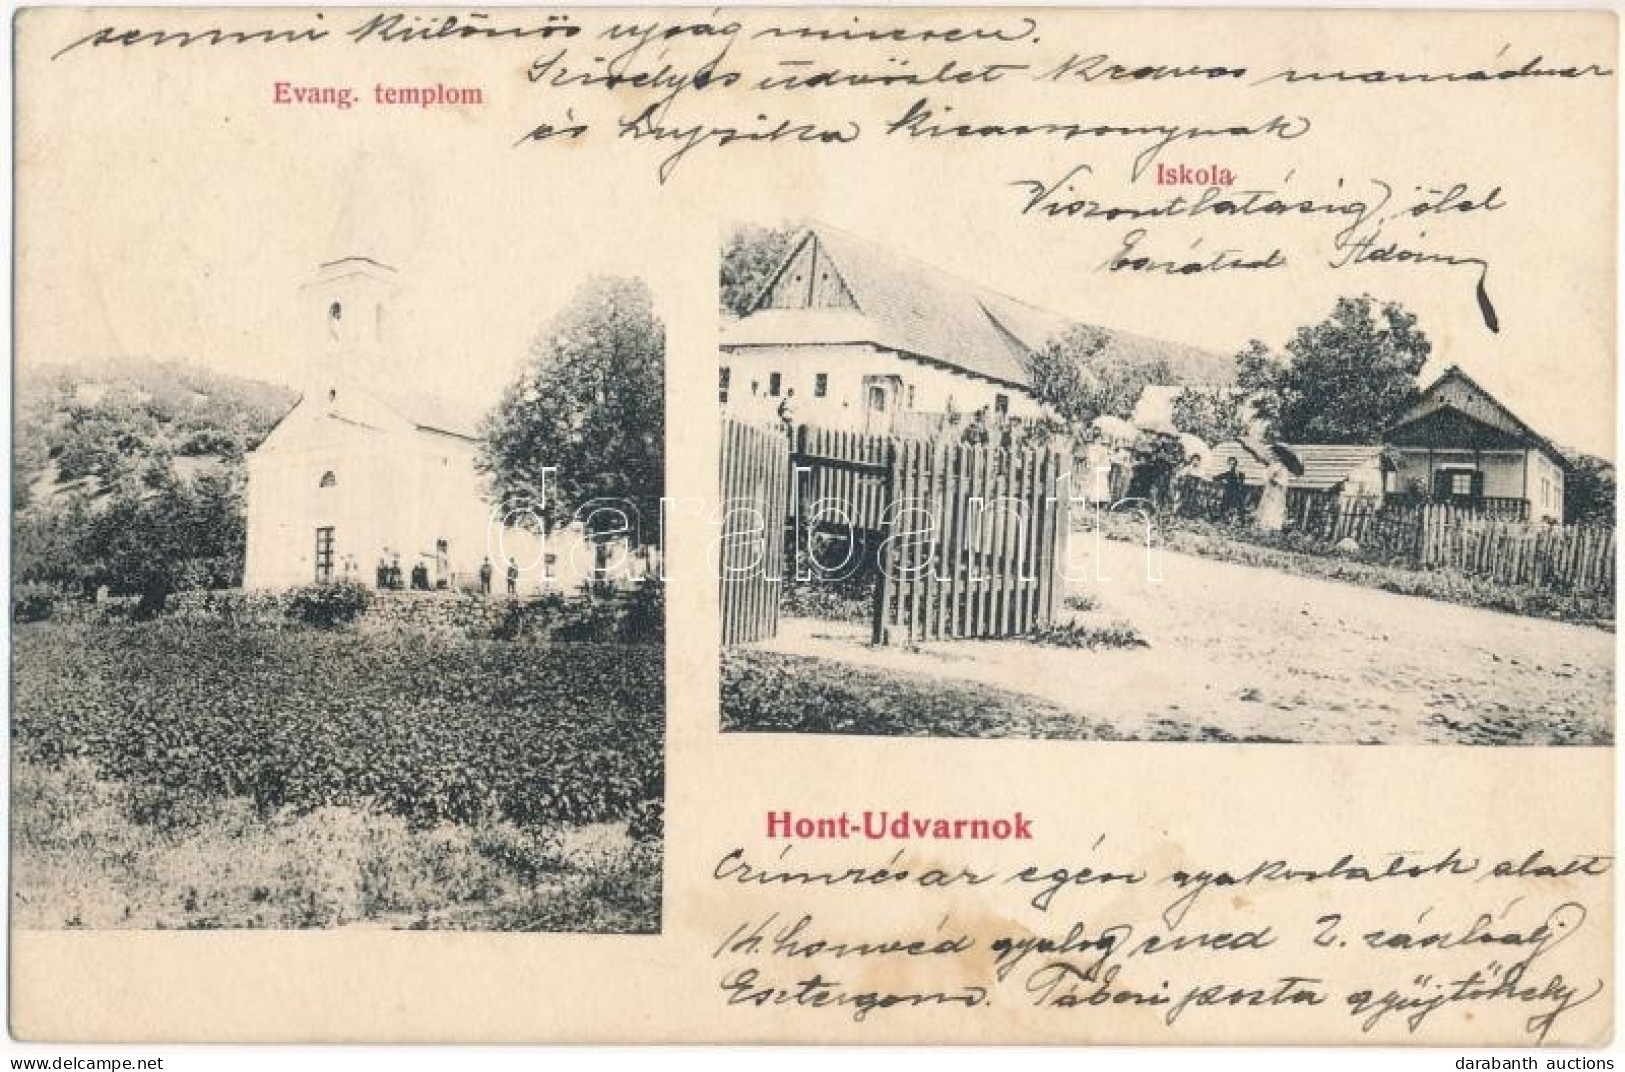 semmi különös ujság nincsen.
Szivélyes üdvözlet Kravos mamádnak
és Lujzika kisasszonynak
Evang. templom
Iskola
Viszontlátásig, ölel
barátod Ádám
darabanth
Hont-Udvarnok
Czímzésar egész gyakorlatok alatt
14. honvéd gyalog ezred 2. zászlóalj
Esztergom. Tábori posta gyüjtőhely
darabanth auctions